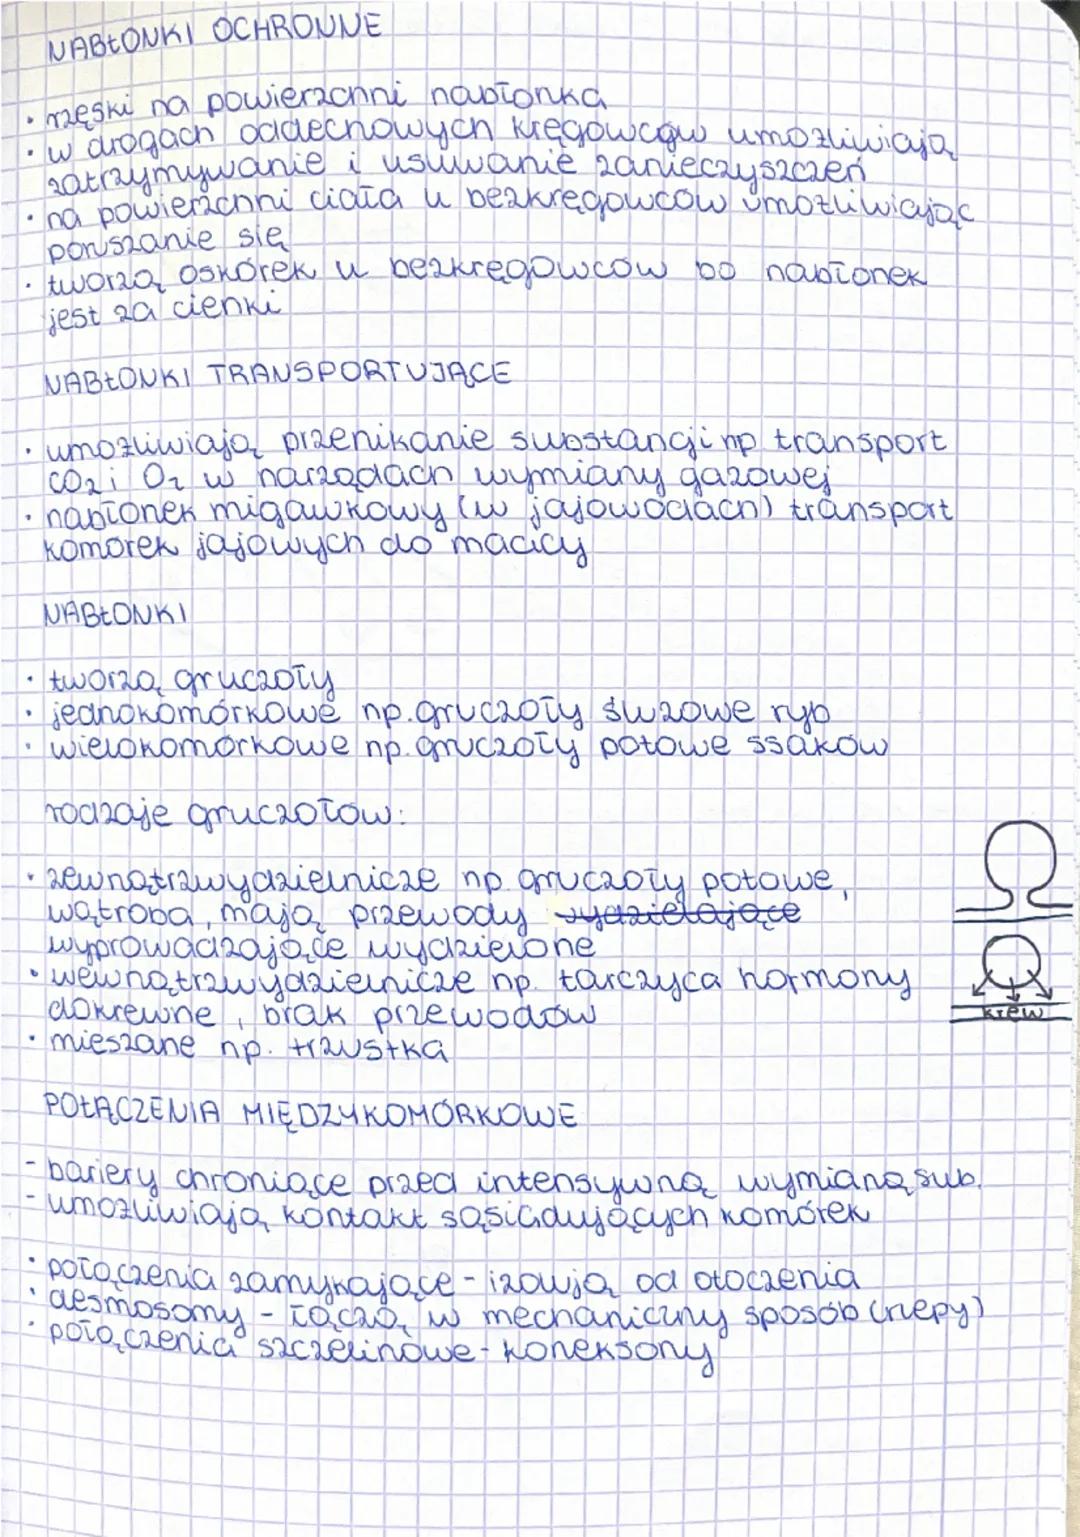 NABŁONKI OCHRONNE
• rzęski na powierzchni nabłonka
• w drogach oddechowych kręgowców umożliwiają
zatrzymywanie i usuwanie zanieczyszczeń
• na powierzchni ciała u bezkręgowców umożliwiając
poruszanie się
• tworzą oskórek u bezkręgowców bo nabłonek
jest za cienki
NABŁONKI TRANSPORTUJĄCE
• umożliwiają przenikanie substancji np transport
CO2 i O2 w narządach wymiany gazowej
• nabłonek migawkowy (w jajowodach) transport
komórek jajowych do macicy
NABŁONKI
• tworzą gruczoły
• jednokomórkowe np. gruczoły śluzowe ryb
• wielokomórkowe np. gruczoły potowe ssaków
rodzaje gruczołów:
• zewnątrzwydzielnicze np. gruczoły potowe,
wątroba, mają przewody wydzielające
wyprowadzające wydzielone
• wewnątrzwydzielnicze np. tarczyca hormony
dokrewne, brak przewodów
krew
• mieszane np. trzustka
POŁĄCZENIA MIĘDZYKOMÓRKOWE
- bariery chroniące przed intensywną wymianą sub.
- umożliwiają kontakt sąsiadujących komórek
• połączenia zamykające - izolują od otoczenia
• desmosomy - łączą w mechaniczny sposób (rzepy)
• połączenia szczelinowe - koneksony